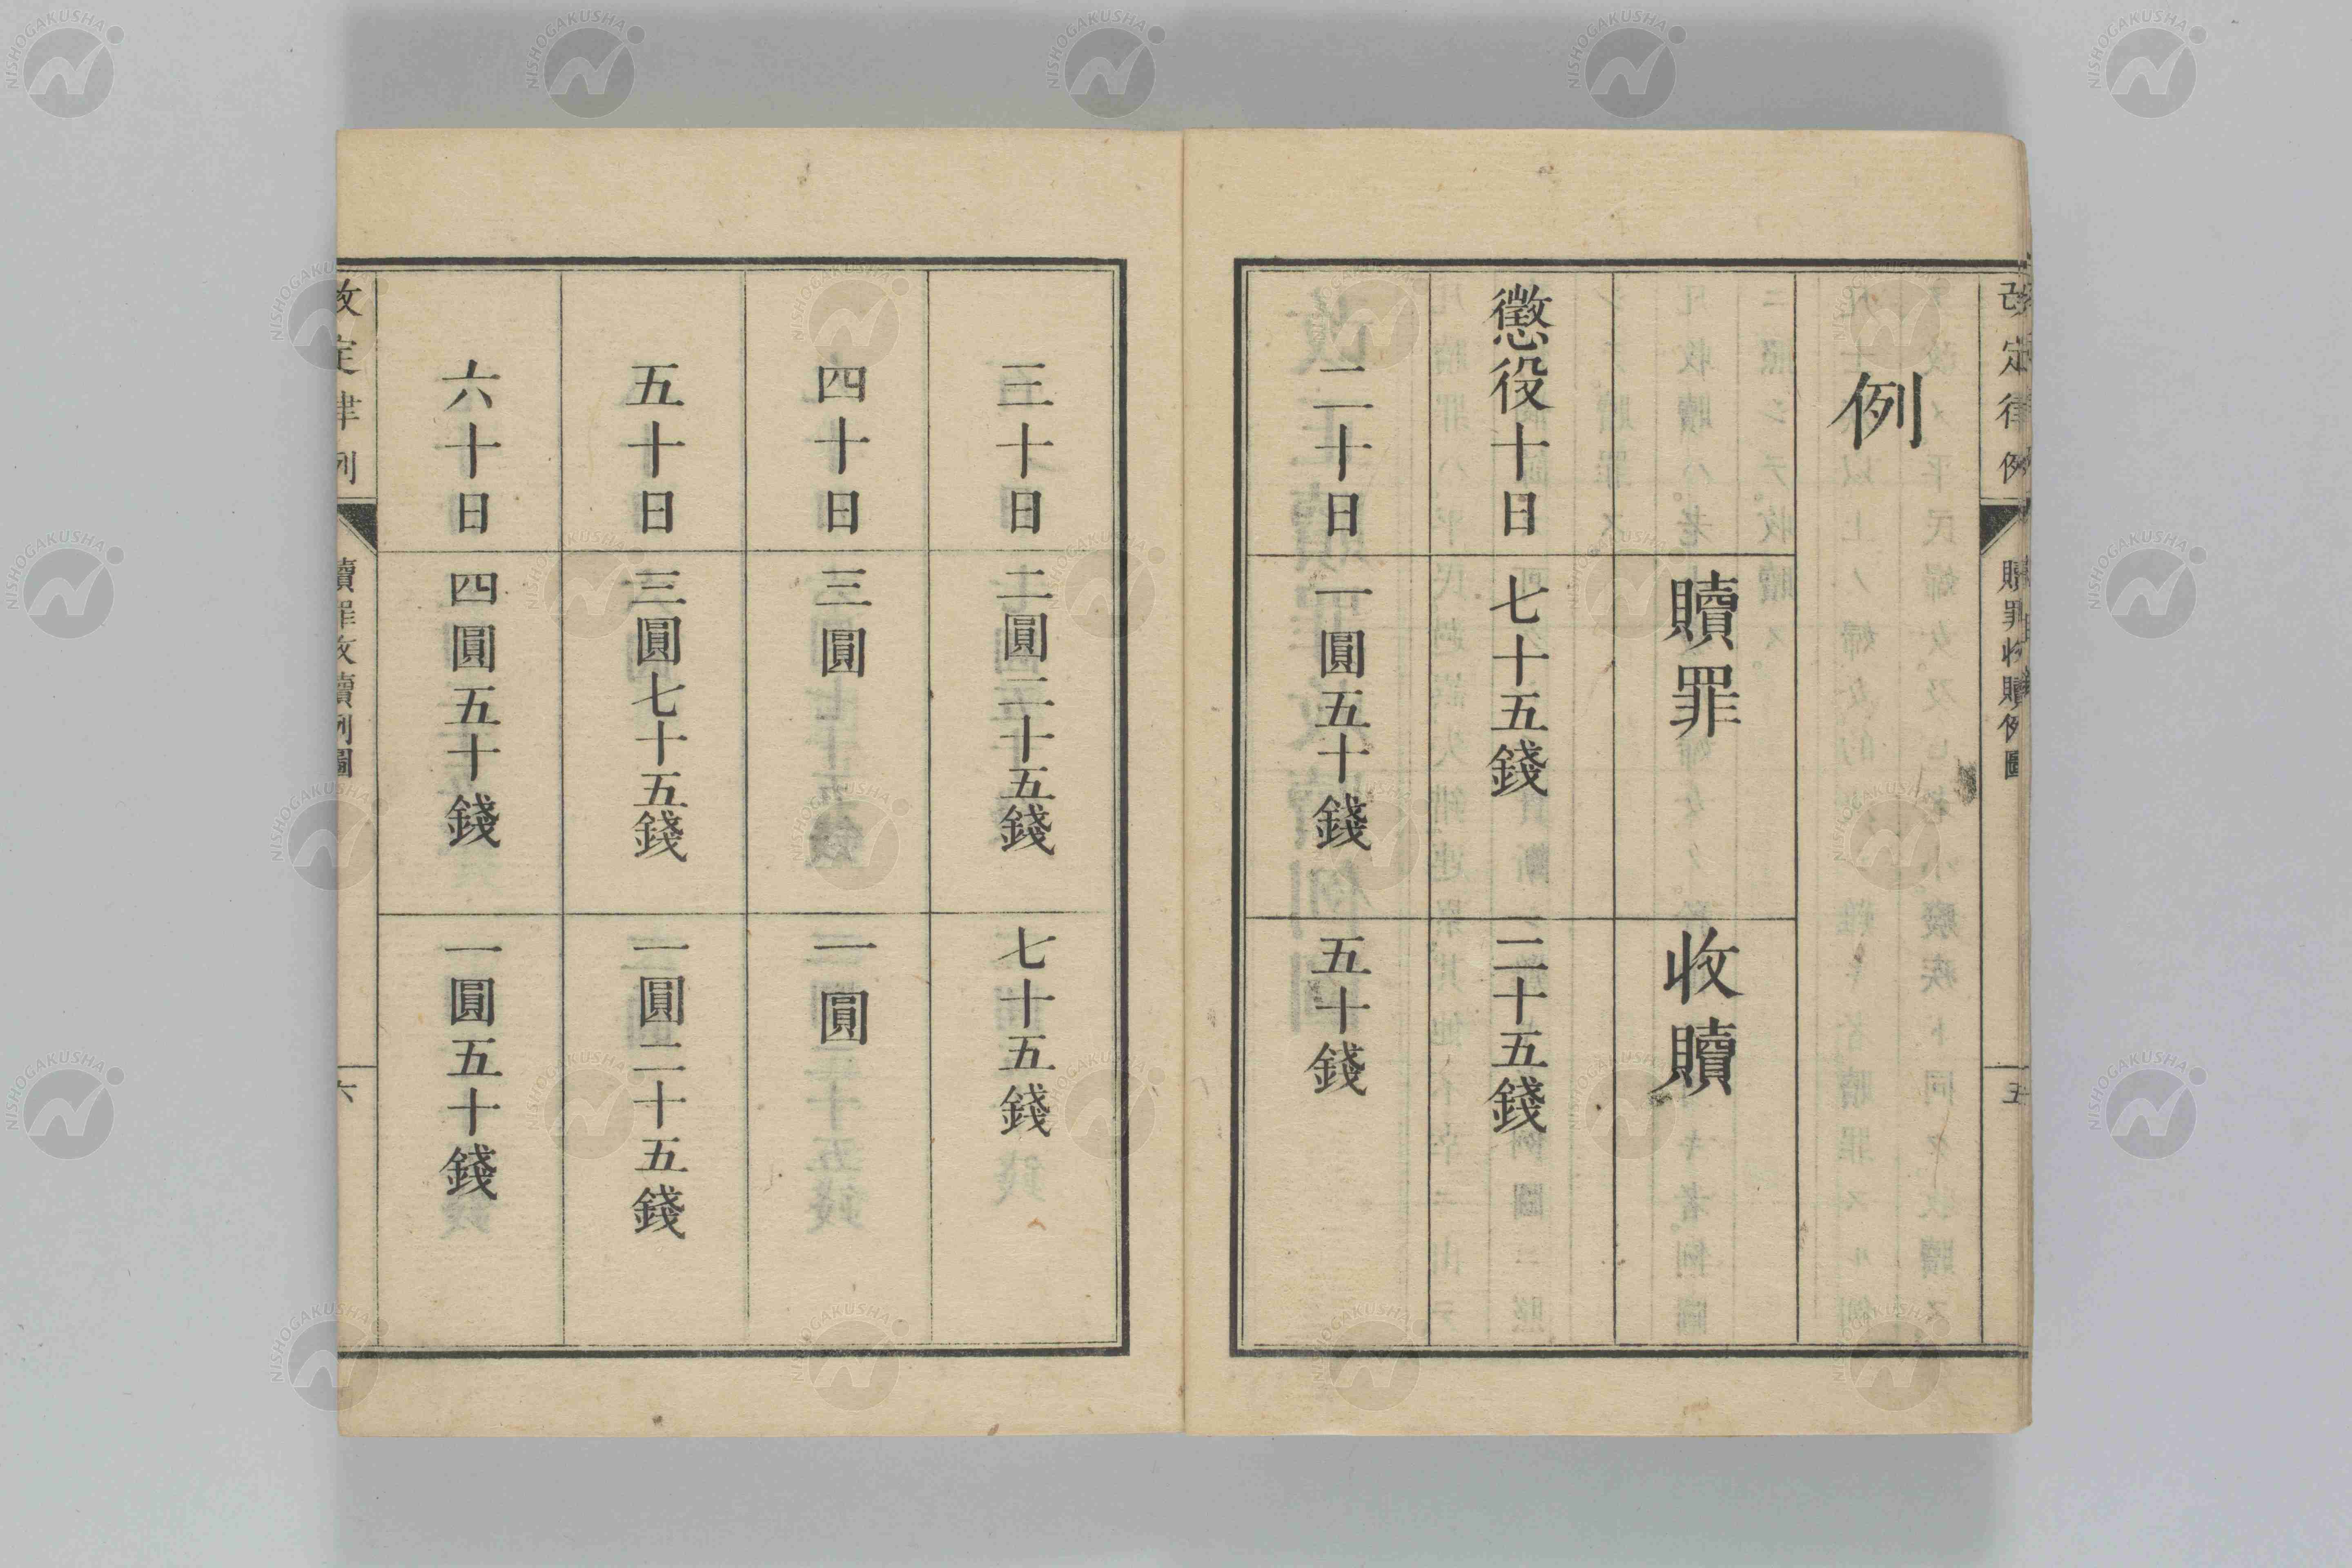 改定律例
贖罪收贖例圖
五
例
贖罪
收贖
懲役十日
七十五錢
二十五錢
二十日
一圓五十錢
五十錢
三十日
二圓二十五錢
七十五錢
四十日
三圓
一圓
五十日
三圓七十五錢
一圓二十五錢
六十日
四圓五十錢
一圓五十錢
改定律例
贖罪收贖例圖
六
NISHOGAKUSHA